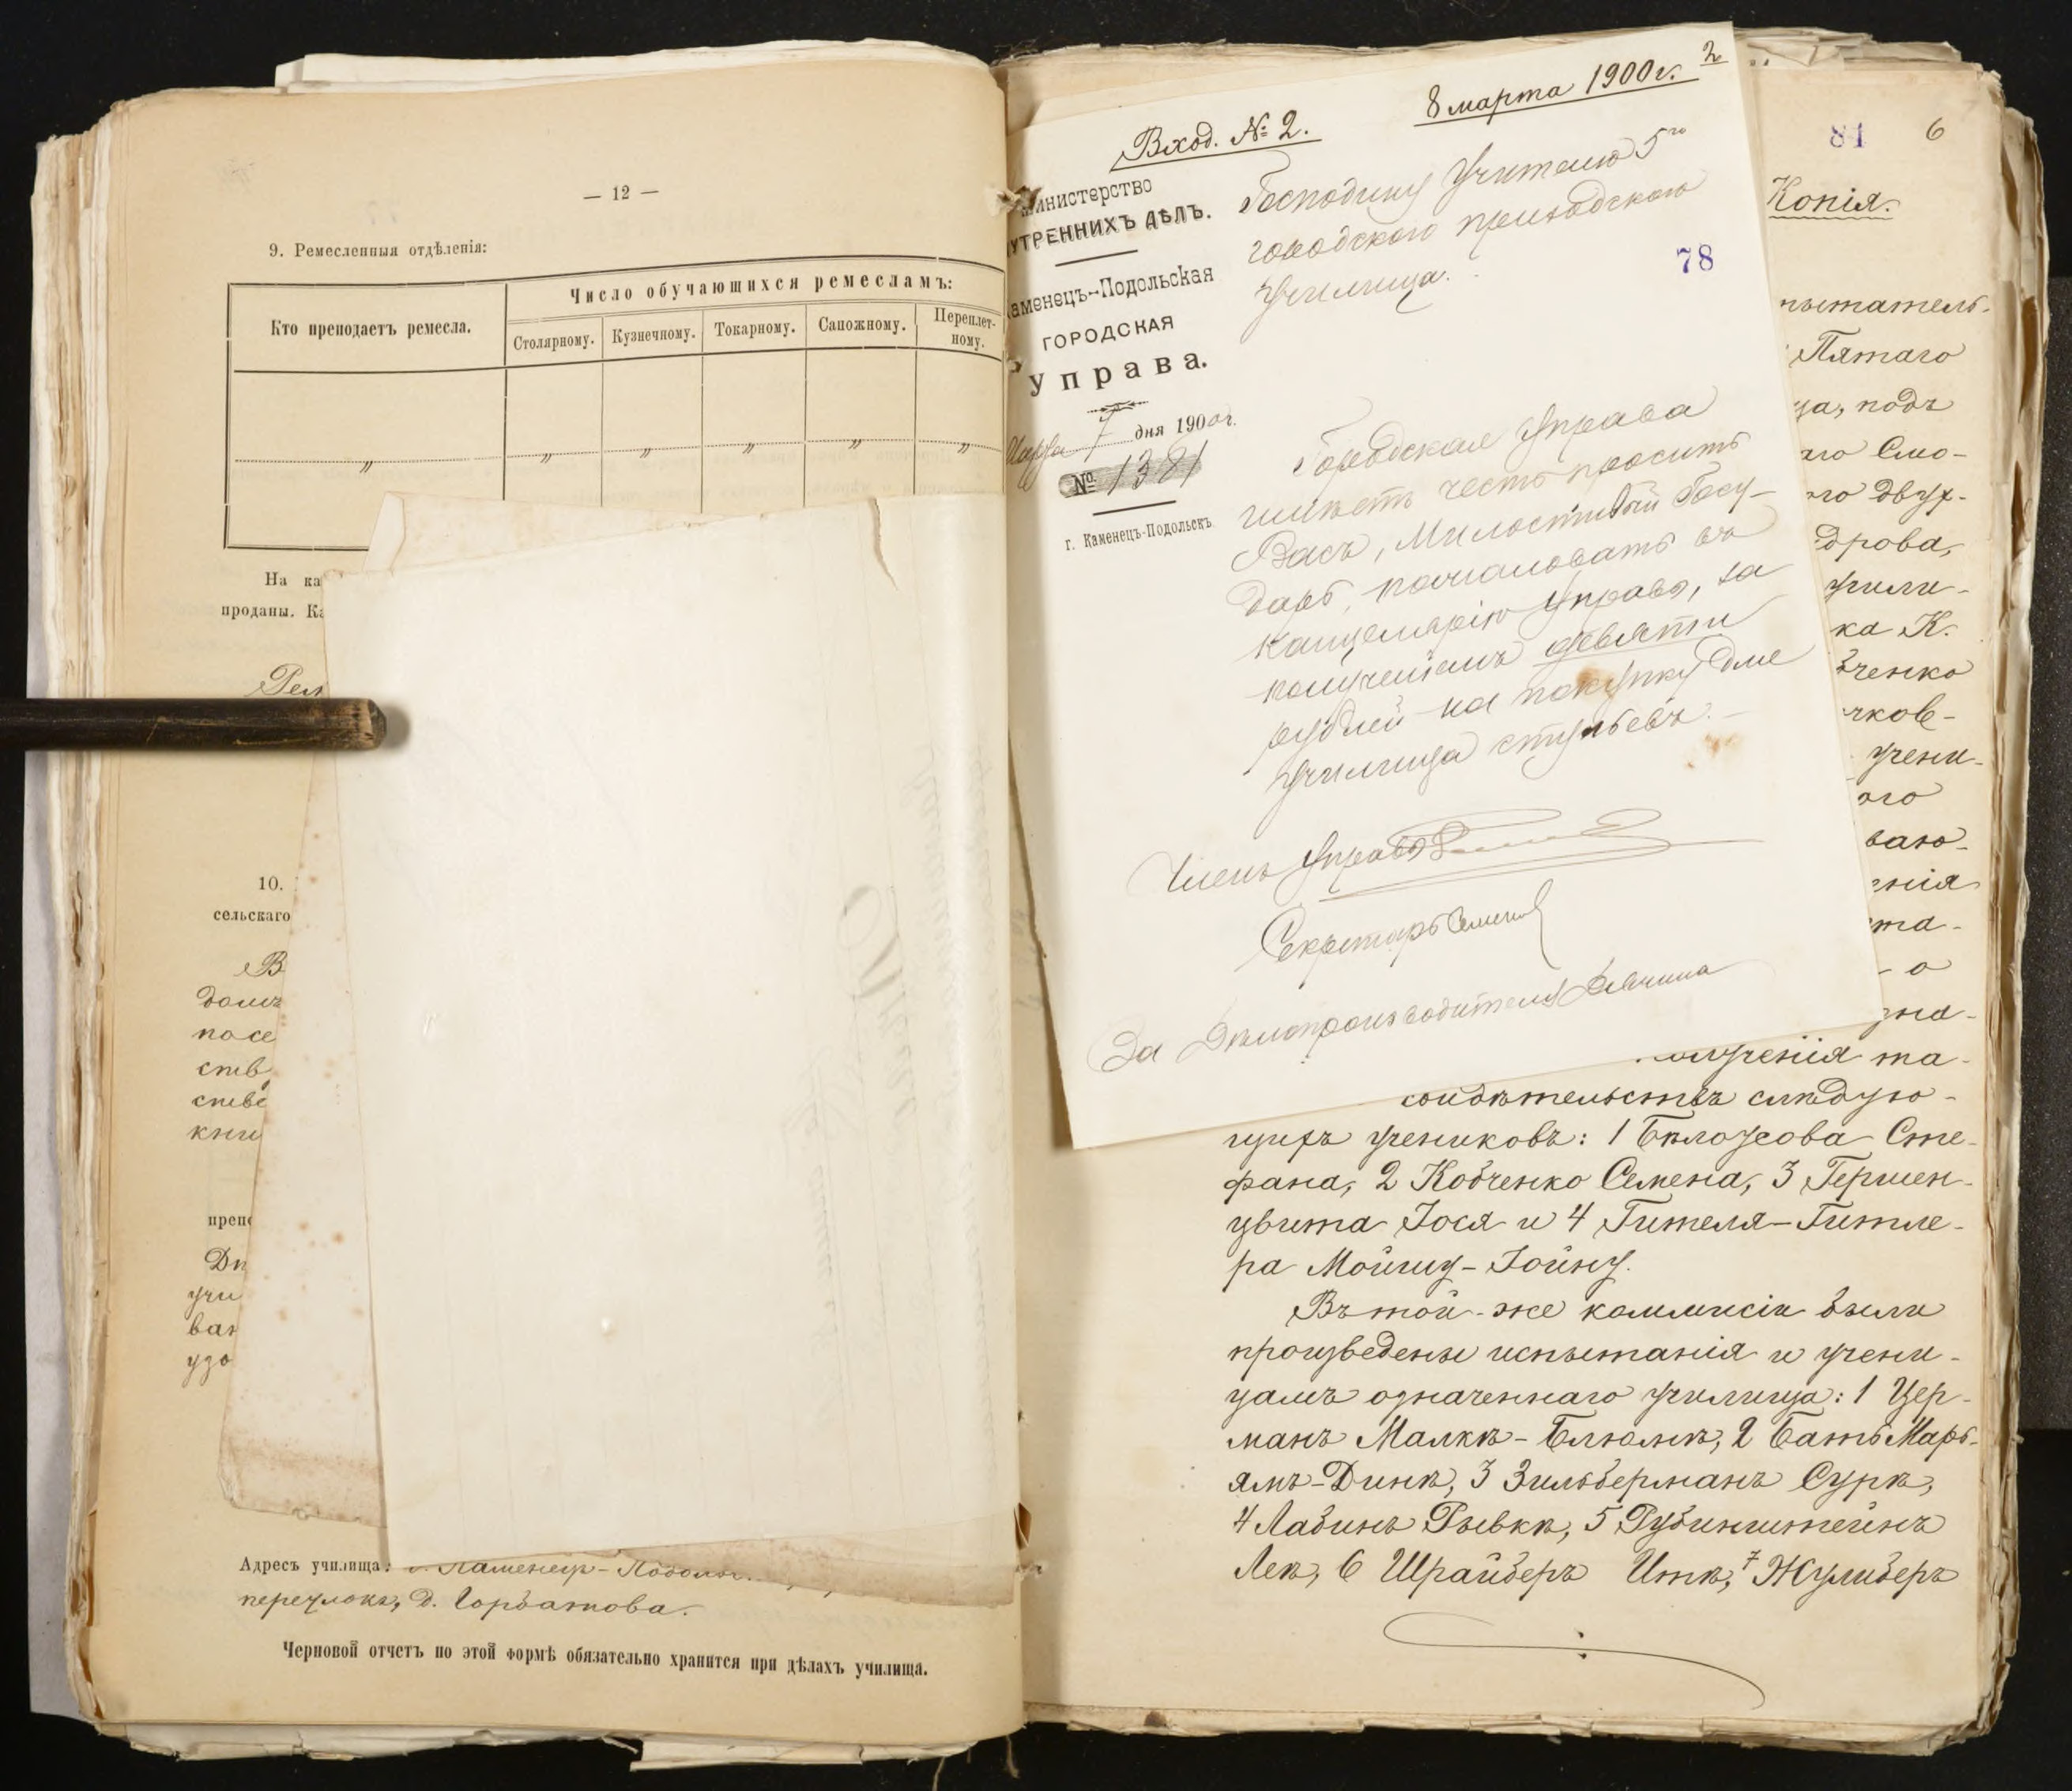 — 12 —
9. Ремесленныя отдѣленія:
Кто преподаетъ ремесла.
Число обучающихся ремесламъ:
Столярному.
Кузнечному.
Токарному.
Сапожному.
Переплет-
ному.
„ „ „ „ „ „
На ка
проданы. Ка
Рем
10.
сельскаго
В
домъ
посе
ств
ство
кни
препо
Дѣ
учи
ван
удо
Адресъ училища: г. Каменецъ-Подольс
переулокъ, д. Горбатова.
Черновой отчетъ по этой формѣ обязательно хранится при дѣлахъ училища.
8 марта 1900 г. 2
Вход. № 2.
Министерство
УТРЕННИХЪ ДѢЛЪ.
аменецъ-Подольская
ГОРОДСКАЯ
Управа.
Марта 7 дня 1900 г.
№ 1381
г. Каменецъ-Подольскъ
Господину Учителю 5го
городского приходскаго
училища.
78
Городская Управа
имѣетъ честь просить
Васъ, Милостивый Госу-
дарь, пожаловать въ
канцелярію Управы, за
полученіемъ девяти
рублей на покупку для
училища стульевъ.
Членъ Управы
Секретарь
За Дѣлопроизводителя
81 6
Копія.
пытатель-
Пятаго
ца, подъ
аго Смо-
го двух-
дрова,
учили-
ка К.
вченко
чков-
учени-
ого
ваю-
енія
ста-
- о
зна-
олученія та-
свидѣтельствъ слѣдую-
щихъ учениковъ: 1 Бѣлоусова Сте-
фана, 2 Кобченко Семена, 3 Гершен-
цвита Іося и 4 Гителя-Гитле-
ра Мойшу-Іойну.
Въ той-же коммисіи были
произведены испытанія и учени-
цамъ означеннаго училища: 1 Цер-
манъ Малкѣ-Блюмѣ, 2 Бать Марь-
ямъ-Динѣ, 3 Зильберманъ Сурѣ,
4 Лабинъ Рывкѣ, 5 Рубинштейнъ
Леѣ, 6 Шрайберъ Итѣ, 7 Жулиберъ